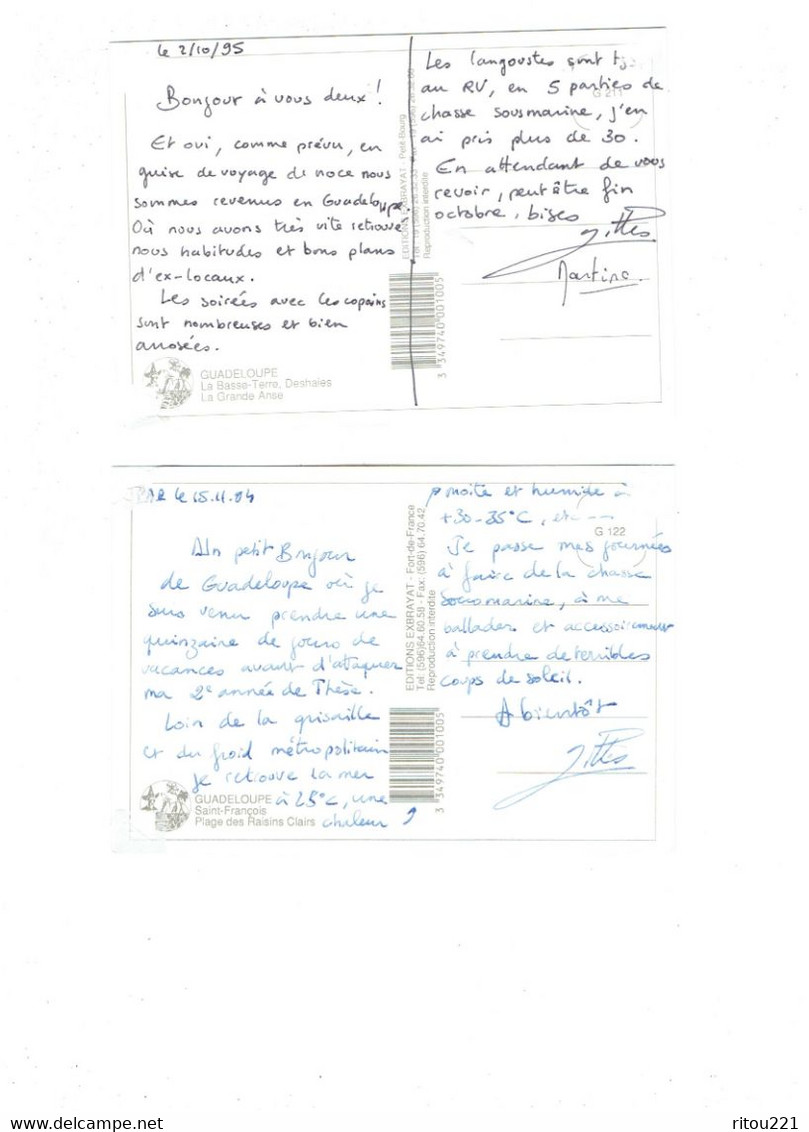 le 2/10/95
Bonjour à vous deux !
Et oui, comme prévu, en
guise de voyage de noce nous
sommes revenus en Guadeloupe.
Où nous avons très vite retrouvé
nous habitudes et bons plans
d'ex-locaux.
Les soirées avec les copains
sont nombreuses et bien
arrosées.
GUADELOUPE
La Basse-Terre, Deshaies
La Grande Anse
EDITIONS EXBRAYAT - Petit-Bourg
Reproduction interdite
3 349740 001005
G 211
Les langoustes sont tjs
au RV, en 5 parties de
chasse sousmarine, j'en
ai pris plus de 30.
En attendant de vous
revoir, peut être fin
octobre, bises
Gilles
Martine.
le 15.11.94
Un petit Bonjour
de Guadeloupe où je
suis venu prendre une
quinzaine de jours de
vacances avant d'attaquer
ma 2e année de Thèse.
Loin de la grisaille
et du froid métropolitain
je retrouve la mer
à 25°C, une
chaleur
GUADELOUPE
Saint-François
Plage des Raisins Clairs
EDITIONS EXBRAYAT - Fort-de-France
Tel. (596)64.60.58 - Fax: (596) 64.70.42
Reproduction interdite
3 349740 001005
G 122
moite et humide à
+30-35°C, etc ---
Je passe mes journées
à faire de la chasse
sousmarine, à me
ballader et accessoirement
à prendre de terribles
coups de soleil.
A bientôt
Gilles
delcampe.net
ritou221